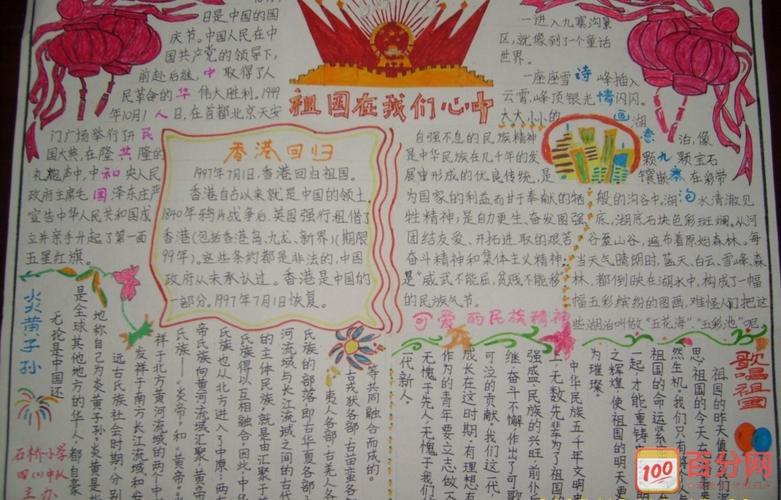 日是中国的国
庆节。中国人民在中
国共产党的领导下,
前赴后继,中取得了人
民革命的华伟大胜利。1949
年10月1人日,在首都北京天安
门广场举行开民
国大典,在隆共隆的
礼炮声中,中和央人民
政府主席毛国泽东庄严
宣告中华人民共和国成
立并亲手升起了第一面
五星红旗。
祖国在我们心中
香港回归
1997年7月1日,香港回归祖国。
香港自古以来就是中国的领土。
1840年鸦片战争后,英国强行租借了
香港(包括香港岛、九龙、新界)(期限
99年)。这些条约都是非法的,中国
政府从未承认过。香港是中国的
一部分,1997年7月1日恢复。
自强不息的民族精神
是中华民族在几千年的发
展重形成的优良传统,是
为国家的利益而甘事奉献的牺
牲精神;是自力更生、奋发图强
团结友爱、开拓进取的艰苦
奋斗精神和集体主义精神;
是"威武不能屈,贫贱不能移"
的民族气节。
可爱的民族精神
一进入九寨沟景
区,就像到了一个童话
世界。
一座座雪诗峰插入
云霄,峰顶银光情闪闪。
大大小小的画湖
意泊,像
颗九颗宝石
镶嵌寨在彩带
般的沟谷中,湖沟水清澈见
底,湖底石块色彩斑斓。从河
谷至山谷,遍布着原始森林。每
当天气晴朗时,蓝天、白云、雪峰、森
林,都倒映在湖水中,构成了一幅
幅五彩缤纷的图画,难怪人们把这
些湖泊叫做"五花海""五彩池"呢
炎黄子孙
无论是中国还
是全球其他地方的华人,都自豪
地称自己为炎黄子孙。炎黄是
远古氏族社会时期,分别
发祥于南方长江流域和
祥于北方黄河流域的两个
氏族——"炎帝"和"黄帝"
帝氏族向黄河流域汇聚,黄帝
氏族也从北方进入了中原,两
民族得以互相融合,因此,中华
的主体民族,就是由汇聚于
河流域与长江流域之间的古代
氏族的部落即古华夏各部
夷人各部、古羌人各
古戎狄各部、古苗蛮各
等共同融合而成的。
石桥小学
四(1)中队
主办
歌唱祖国
祖国的昨天值
思,祖国的今天
然生机,我们只有
祖国的命运紧
一起,才能重铸
之辉煌,使祖国的明天更
为璀璨。
中华民族五千年文明
上,无数先辈为了祖国
强盛,民族的兴旺,前仆
继,奋斗不懈,作出了可歌
可泣的贡献。我们这一代
成长在这时期,有理想有
作为的青年要立志做个
无愧于先人,无愧于我们
代新人。
100
百分网